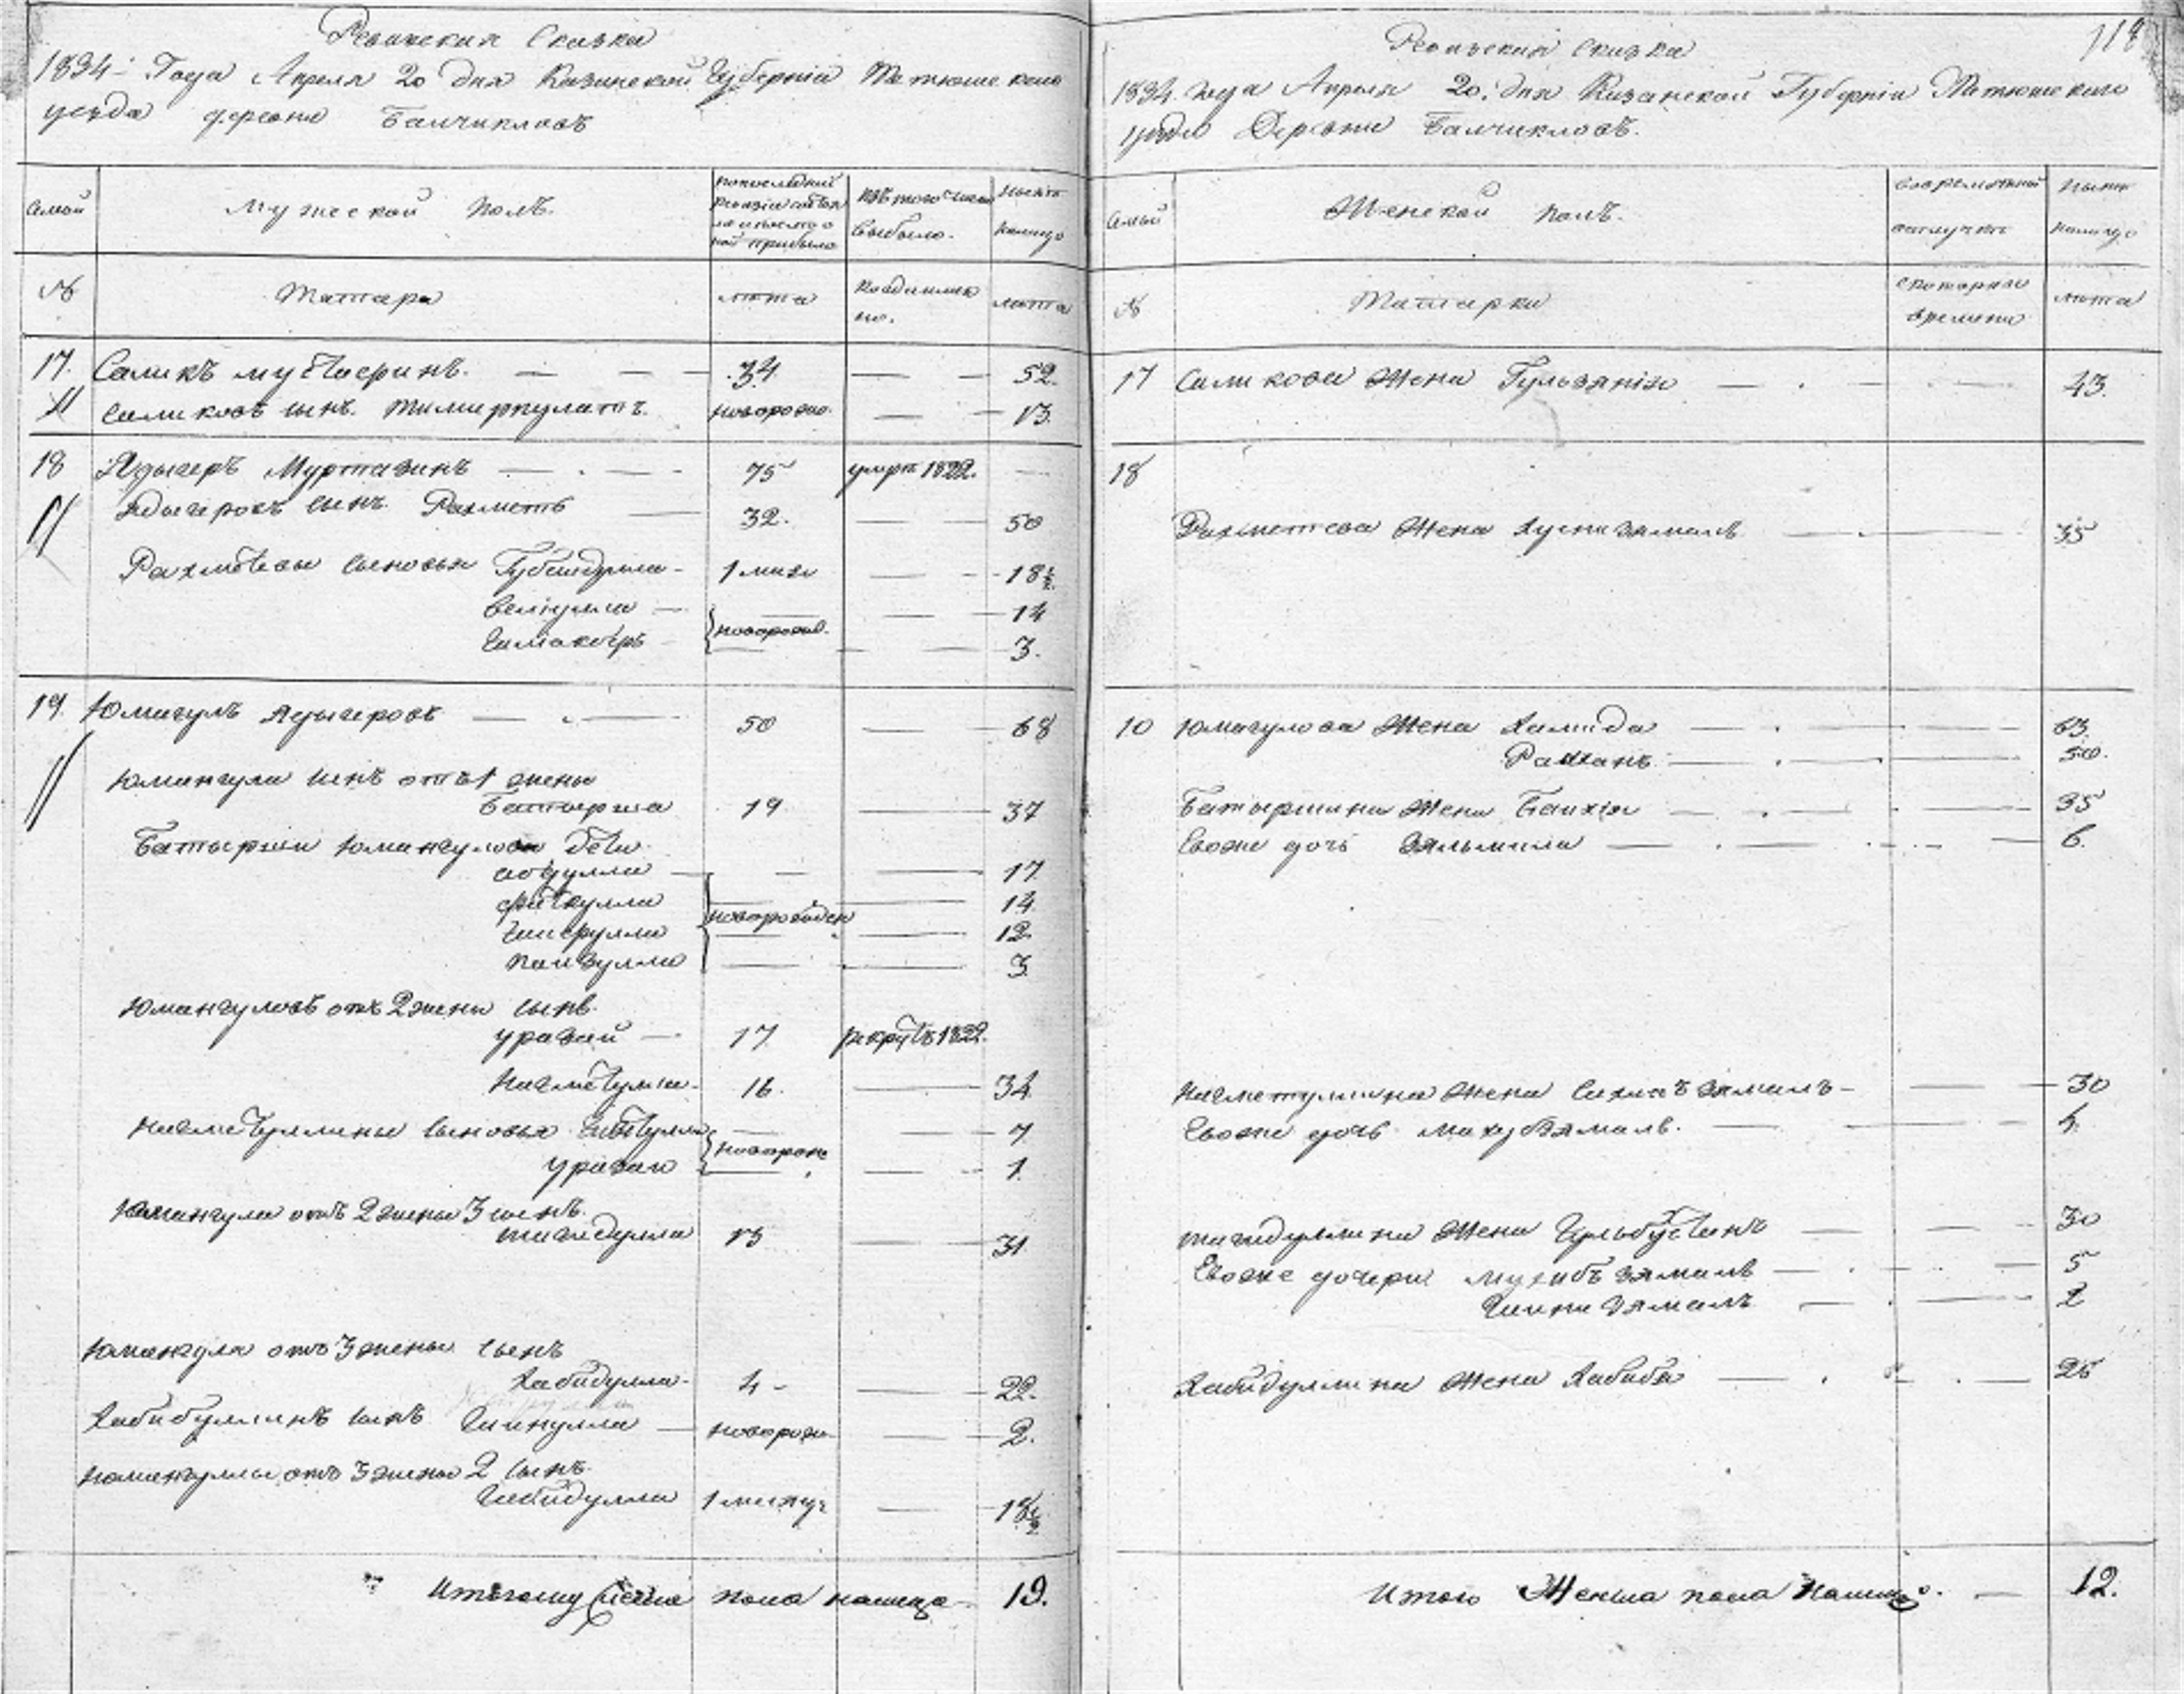 Ревизская Сказка
1834 Года Апреля 20 дня Казанской Губерніи Тетюшскаго
уезда деревни Балчикловъ
Семьи
Мужеской полъ.
По последней ревизіи состояло и после оной прибыло
Изъ того числа выбыло.
Ныне налицо
№
Татара
лета
Когда именно.
лета
17. Саликъ Мустаеринъ. — 34 — 52.
11 Саликовъ сынъ. Тимирпулатъ. новорожд. — 13.
18 Ядыгеръ Муртазинъ — 75 умре 1822. —
Ядыгеровъ сынъ Рахметъ — 32. — 50
Рахметевы сыновья Губайдулла — 1 мися — 18½
Велiулла — 14
новорожд.
Гилмокберъ — 3.
19. Юмагулъ Ядыгеровъ — 50 — 68
Юмангула сынъ отъ 1 жены
Батырша 19 — 37
Батырши Юмангулова дети
абдулла — 17
фейткулла — 14
новорожден
Гинсрулла — 12
панзулла — 3
Юмангуловъ отъ 2 жены сынъ.
уразай — 17 рекрутъ 1822.
Нигметулла 16. — 34
Нигметуллины сыновья Гибетулла — 7
новорож
уразаи — 1
Юмангула отъ 2 жены 3 сынъ.
тагидулла 13 — 31
Юмангула отъ 3 жены сынъ
Хабидулла 4 — 22.
Хабибуллинъ сынъ Гинкулла — новорож. — 2.
Юмангулы отъ 3 жены 2 сынъ.
Гибидулла 1 месяц — 18½
Итого мужеска пола налицо — 19.
118
Ревизская сказка
1834 года Апреля 20 дня Казанской Губерніи Тетюшскаго
уезда Деревни Балчикловъ.
Семьи
Женской полъ.
Во временной отлучке
Ныне налицо
№
Татарки
с котораго времени
лета
17 Саликова Жена Гульзянія — 43.
18
Рахметева Жена Хуснизямалъ — 35
10 Юмагулова Жена Хамида — 63.
Райханъ — 50.
Батыршина Жена Банхія — 35
Евоже дочь Зяльмила — 6.
Нигметуллина Жена Сахибзямалъ — 30
Евоже дочь Махубзямалъ. — 4
тагидуллина Жена Гульбустанъ — 30
Евоже дочери Мухибзямалъ — 5
Гинизямалъ — 2
Хабидуллина Жена Хабиба — 25
Итого Женска пола Налицо. — 12.